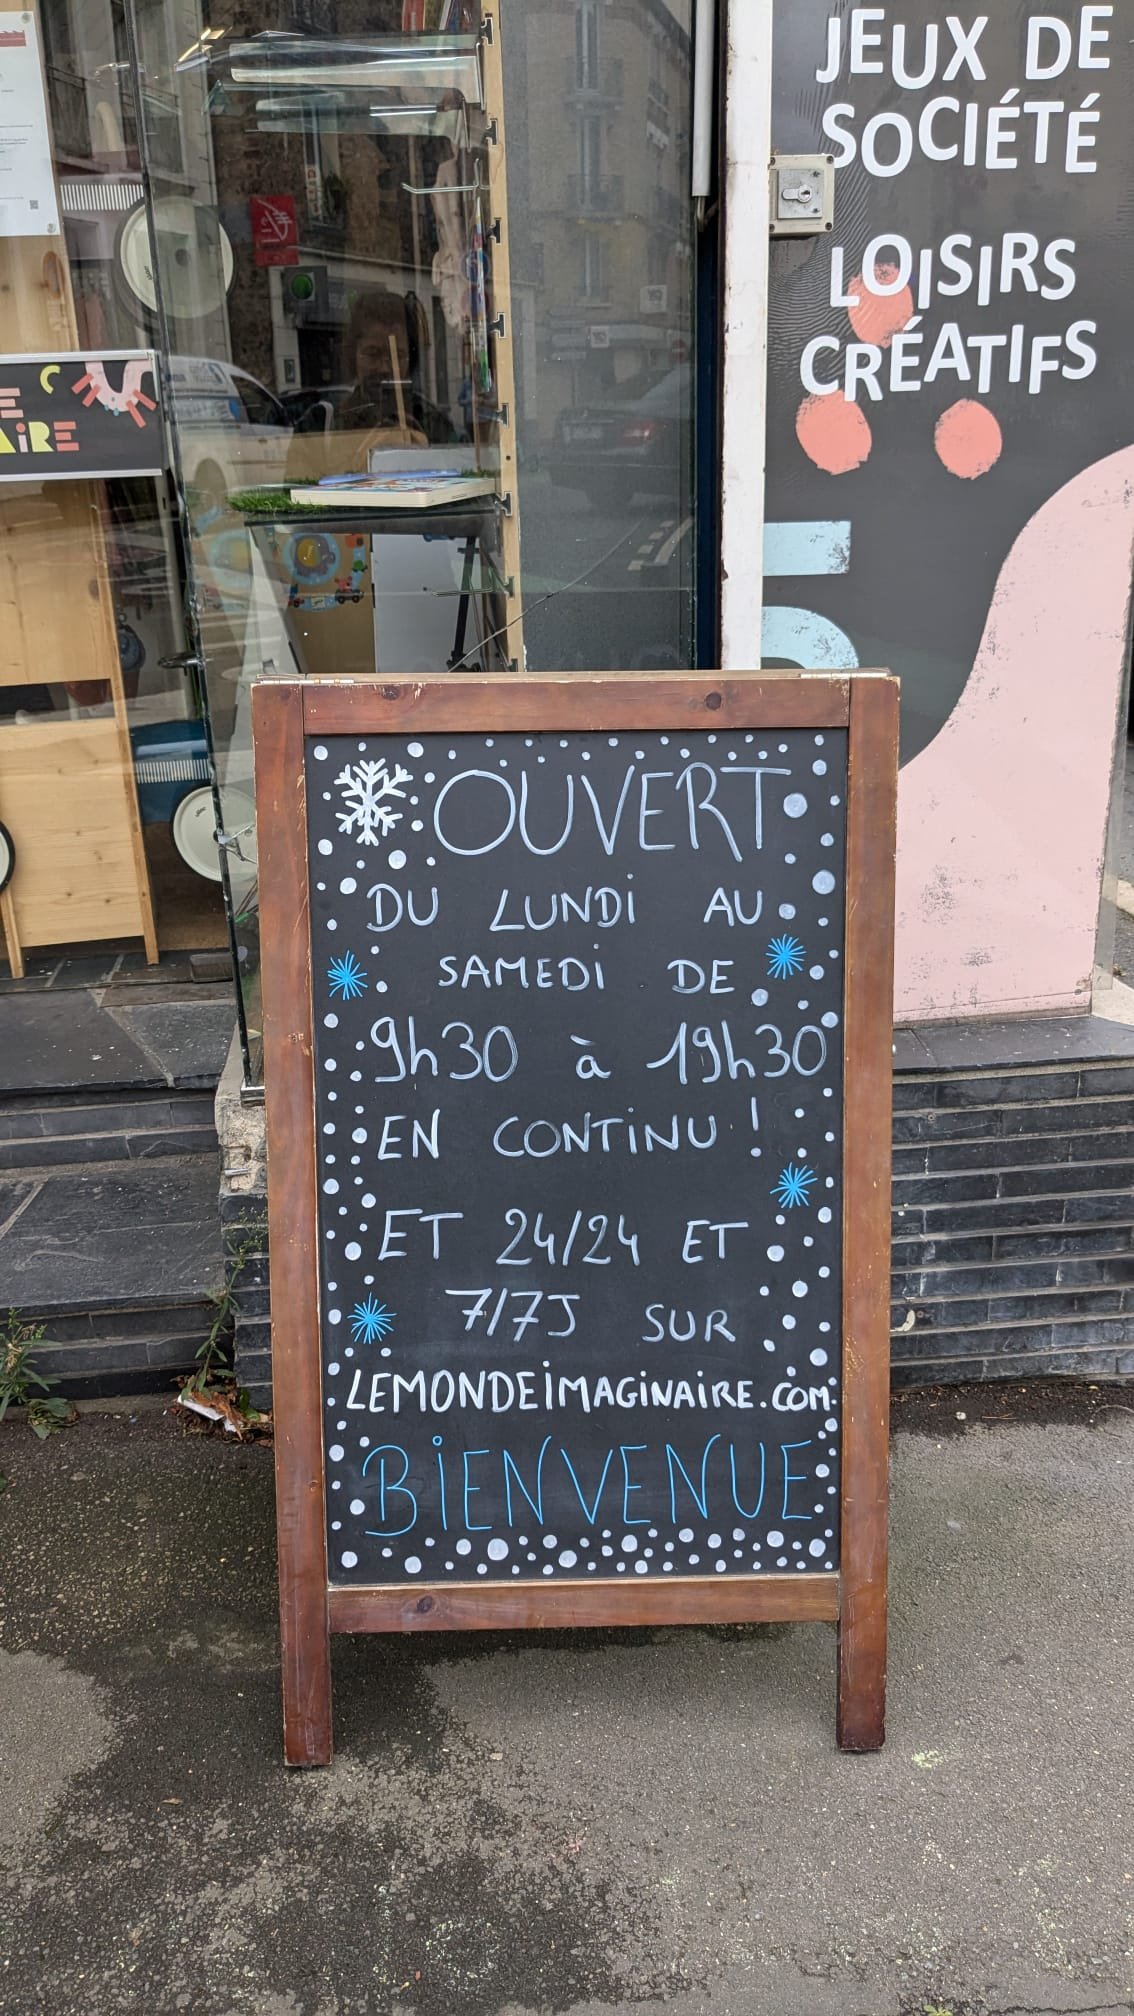 JEUX DE
SOCIÉTÉ
LOISIRS
CRÉATIFS
E
AiRE
OUVERT
DU LUNDi AU
SAMEDi DE
9h30 à 19h30
EN CONTiNU !
ET 24/24 ET
7/7J SUR
LEMONDEiMAGiNAiRE.COM
BiENVENUE